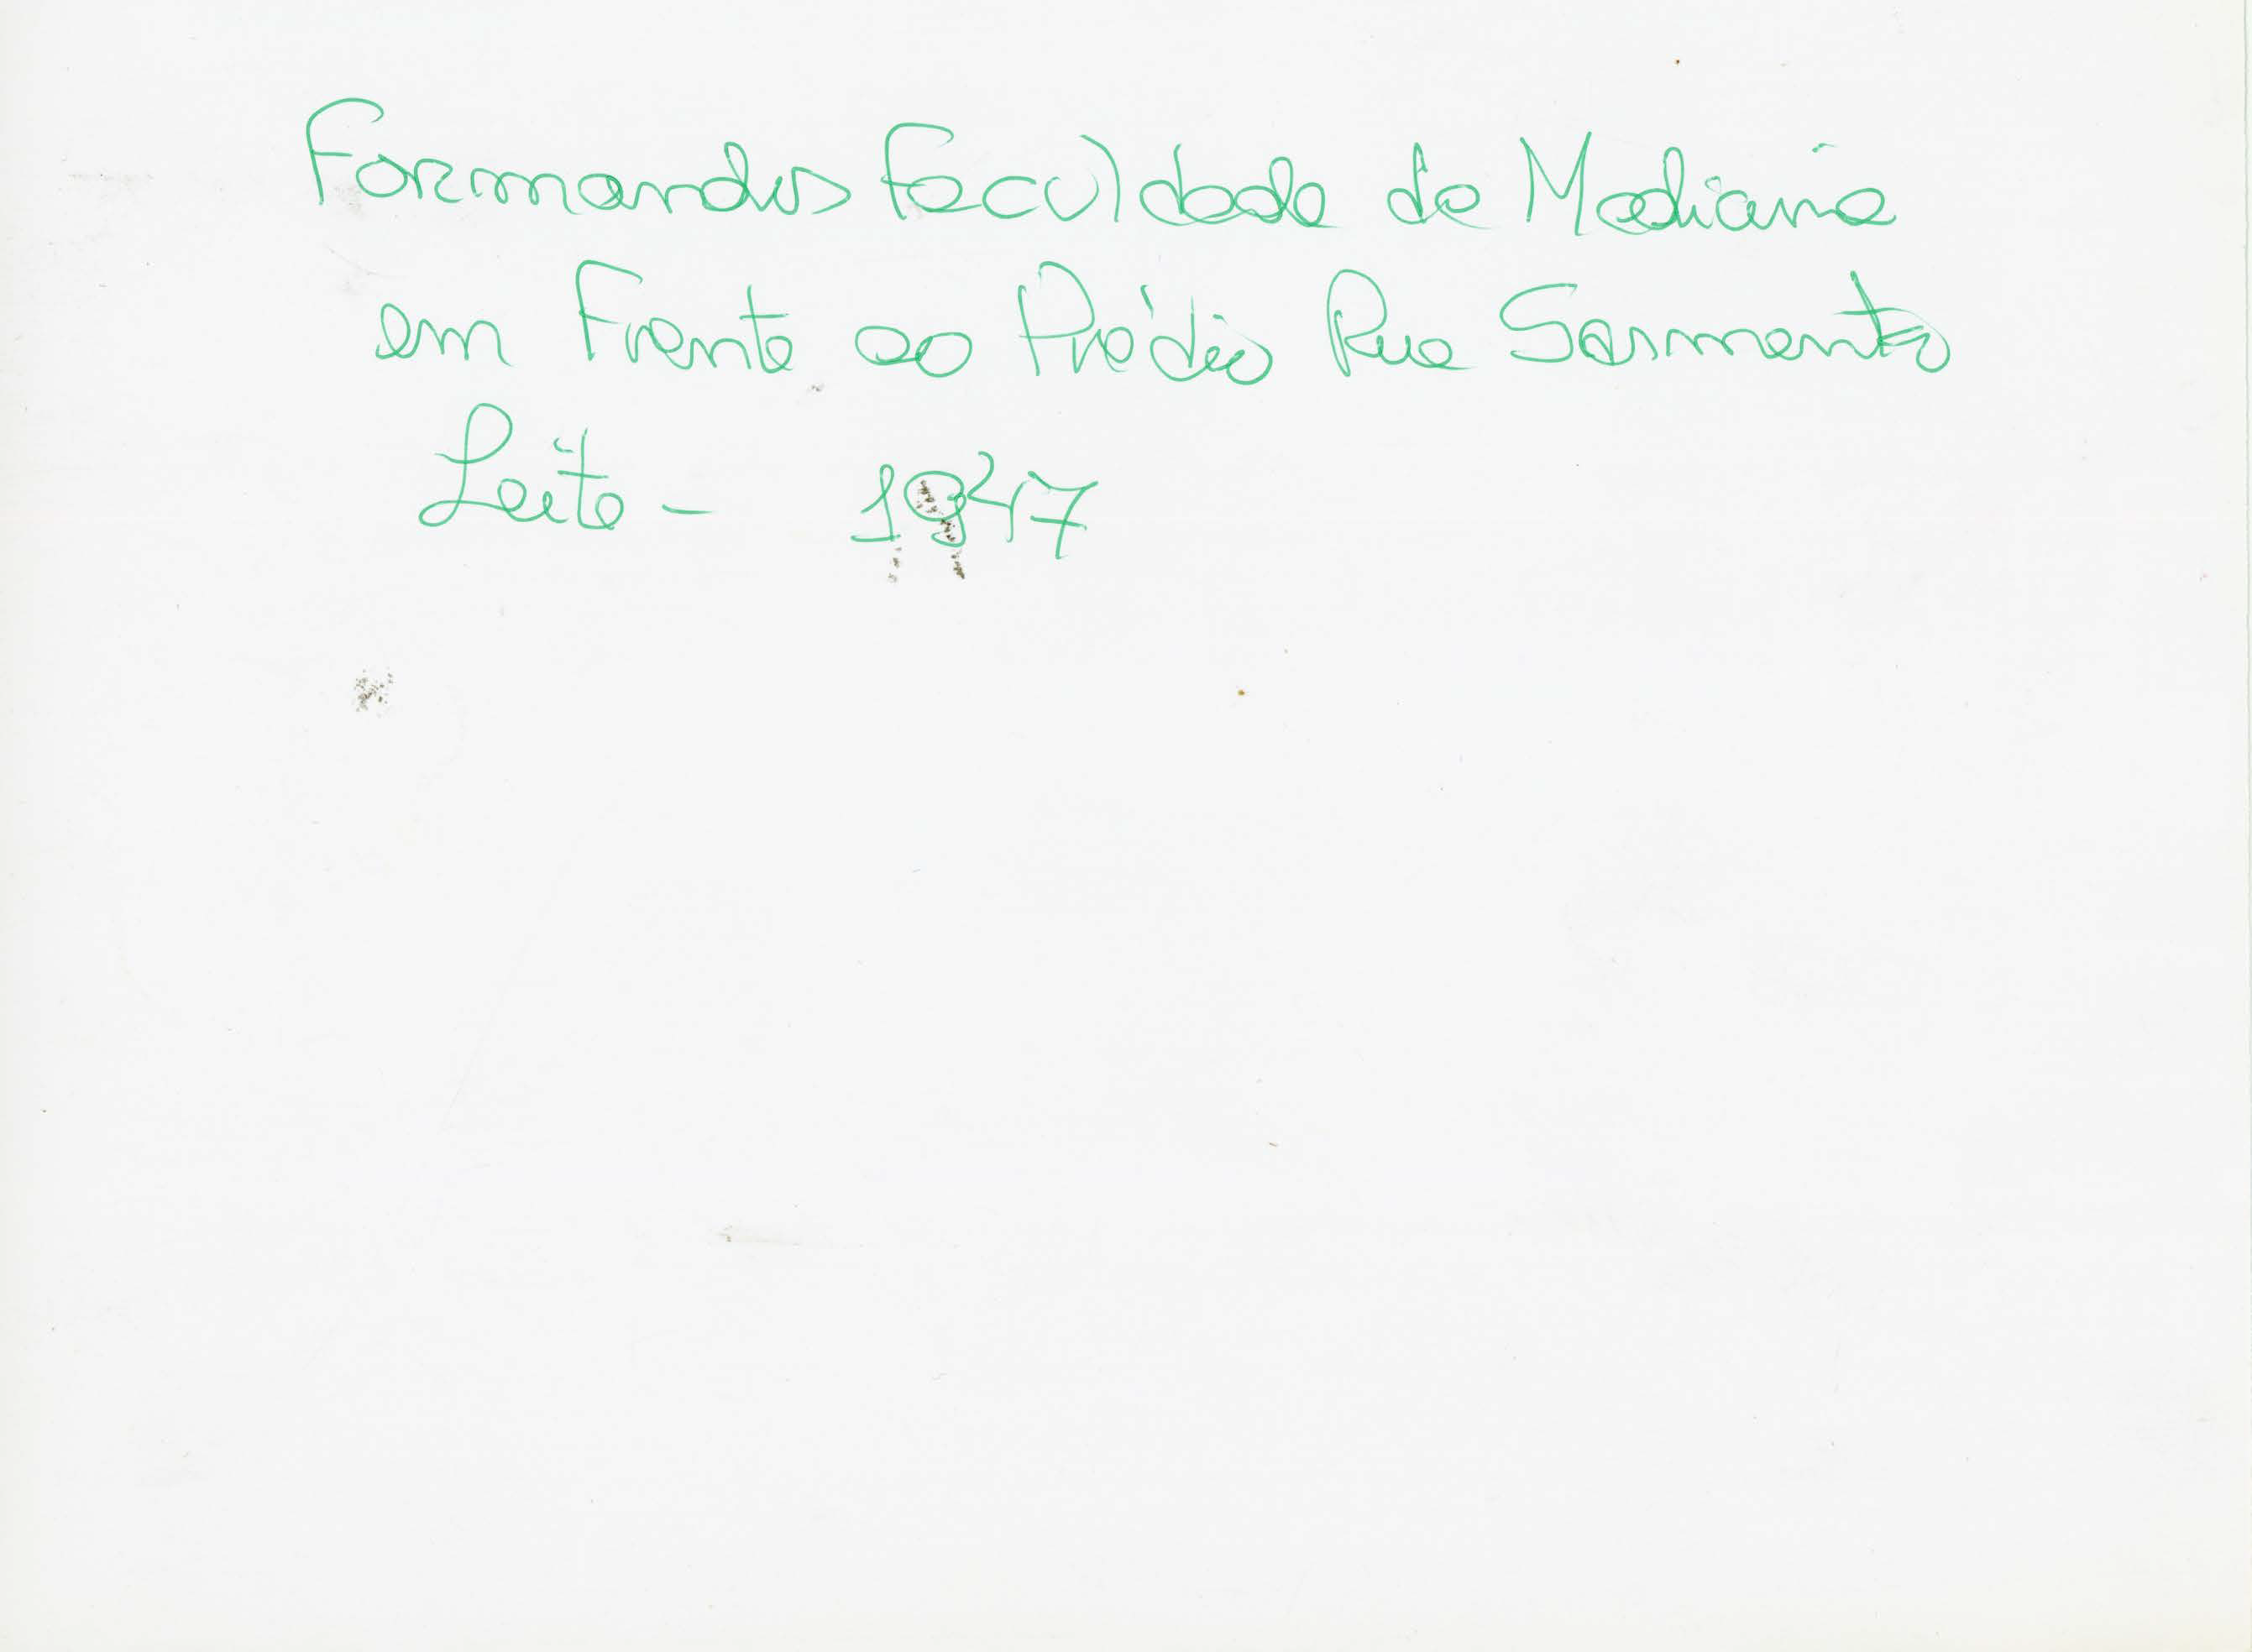 Formandos Faculdade de Medicina
em Frente ao Prédio Rua Sarmento
Leite - 1947